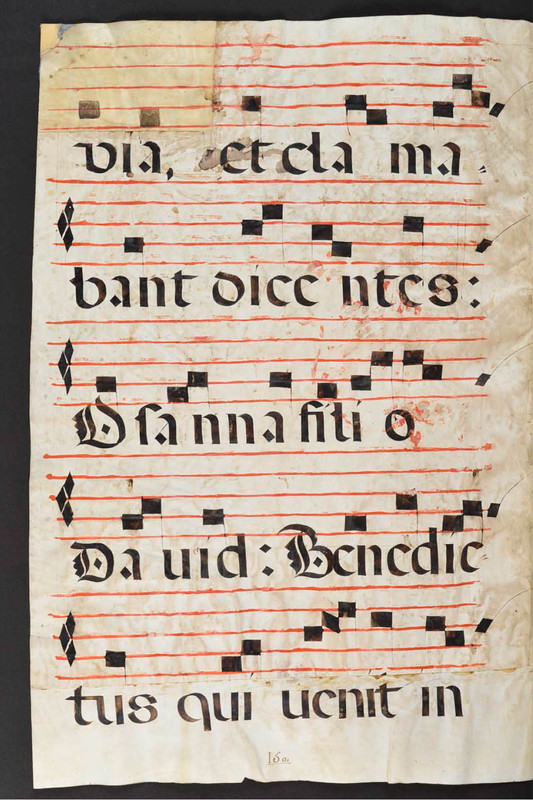 via, et cla ma
bant dice ntes:
O sa nna fili o
Da uid: Benedic
tus qui uenit in